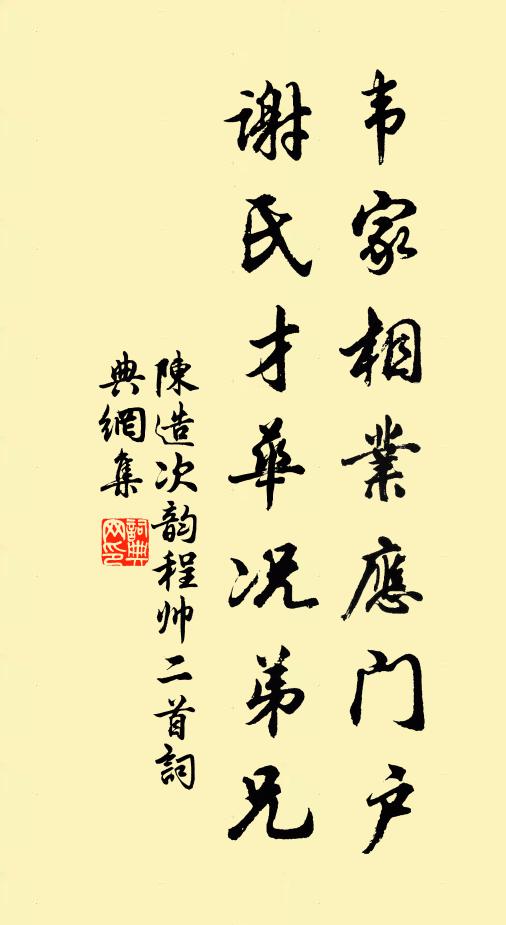 韦家相業應门户
谢氏才華况弟兄
陳造次韵程帅二首詞
典網集
詞典网印